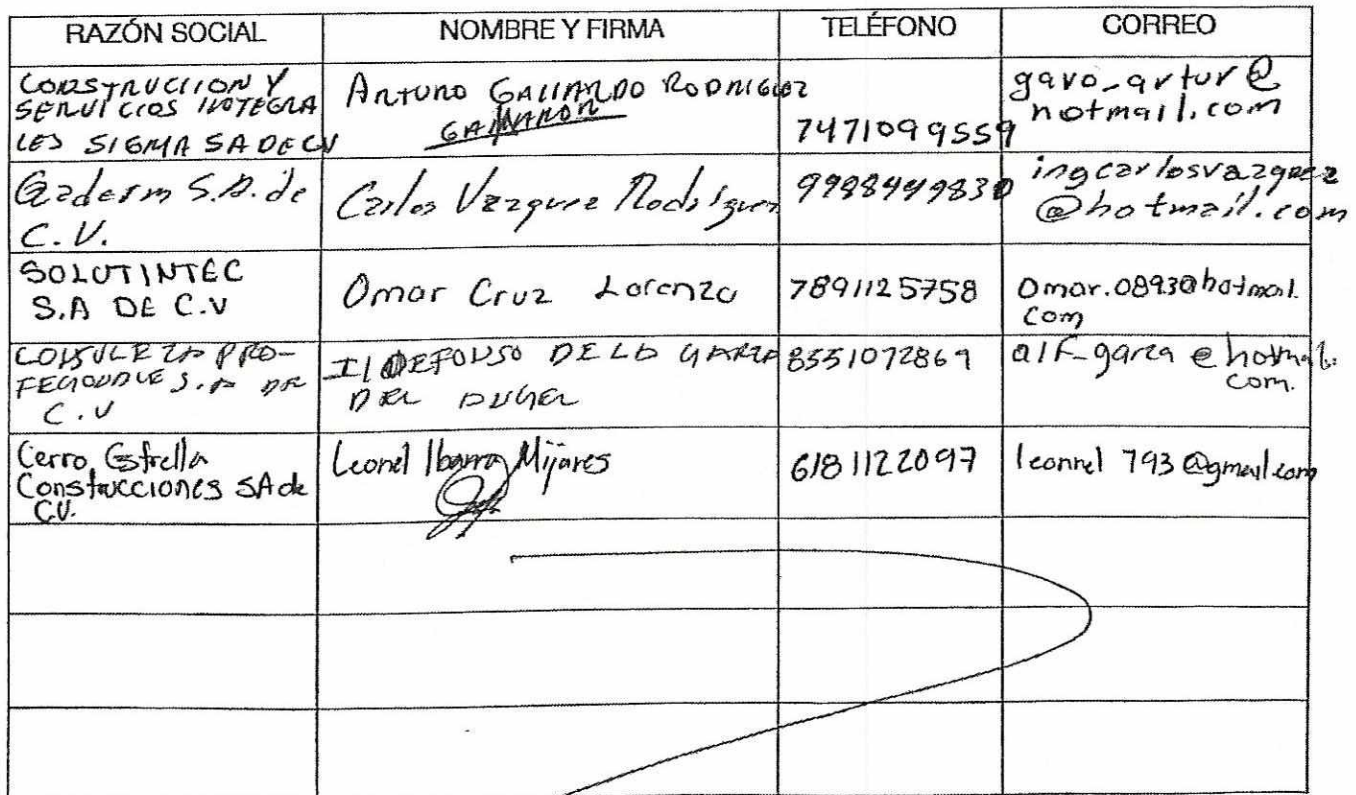 RAZÓN SOCIAL NOMBRE Y FIRMA TELÉFONO CORREO
CONSTRUCIION Y
SERVICIOS INTEGRA
LES SIGMA SA DE CV
ARTURO GALLARDO RODRIGUEZ
7471099559
gavo_artur@
hotmail.com
S.A. de
C.V.
Carlos Vazquez Rodriguez
9988449830
ingcarlosvazquez
@hotmail.com
SOLUTINTEC
S.A DE C.V
Omar Cruz Lorenzo
7891125758
Omar.0893@hotmail.
com
C.V
ILDEFONSO DE LA GARZA
DEL ANGEL
8331072869
alf_garza@hotmail.
com.
Cerro Estrella
Construcciones SA de
C.V.
Leonel Ibarra Mijares
6181122097
leonnel793@gmail.com